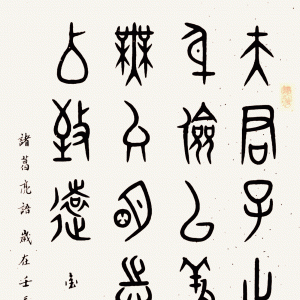 夫君子之
身儉以養
無以明志
以致遠
諸葛亮語歲在壬